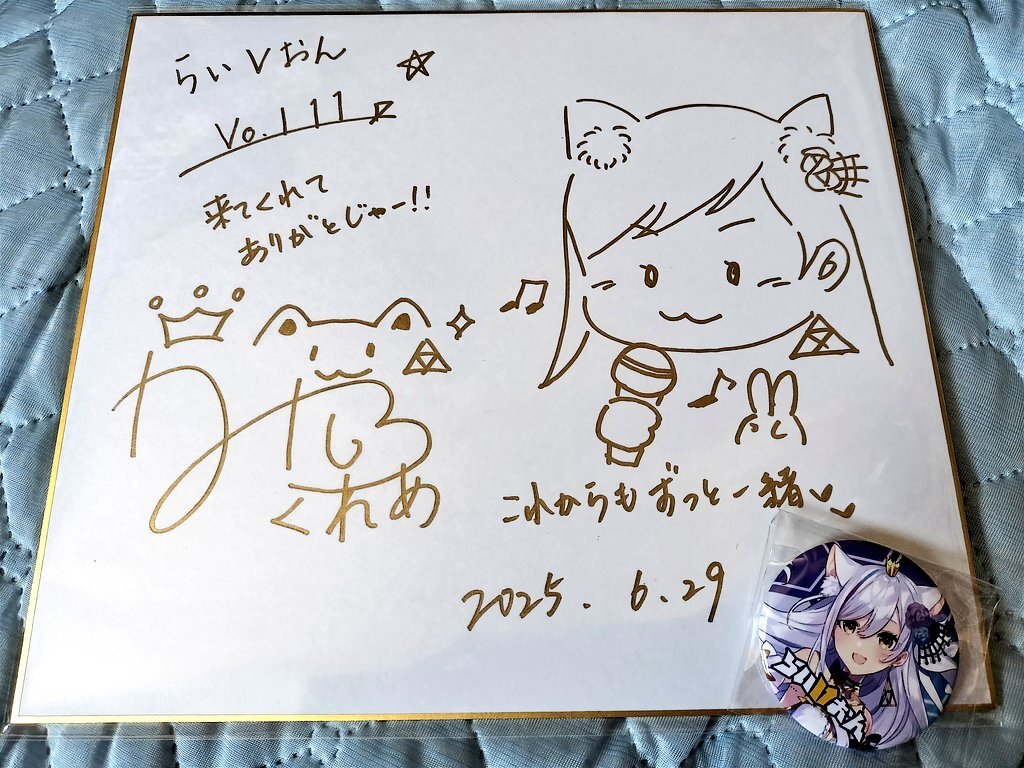 らいVおん
Vo.111
来てくれて
ありがとじゃー!!
くれあ
これからもずっと一緒
2025.6.29
らいVおん